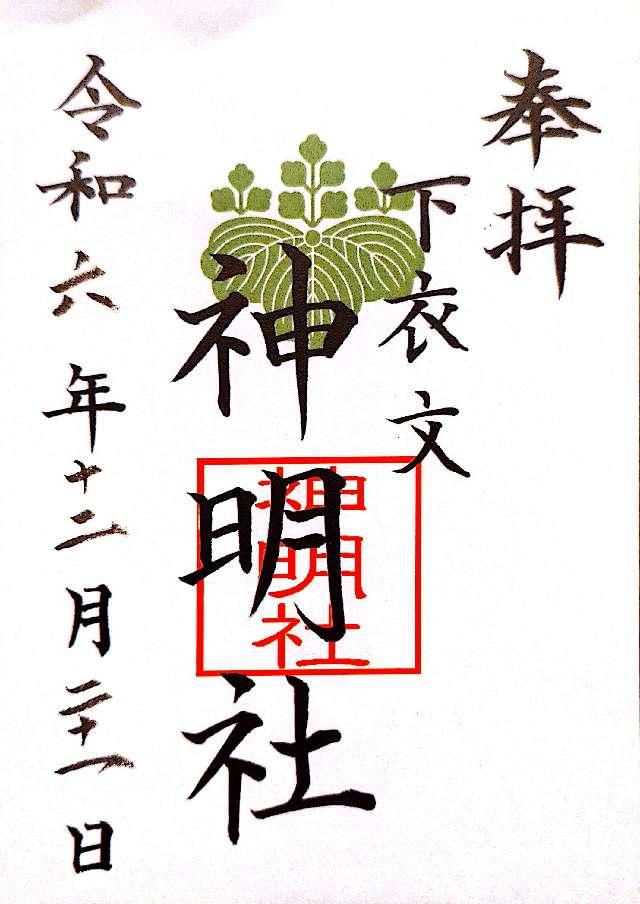 奉拝
下衣文
神明社
神明社
令和六年十二月二十一日